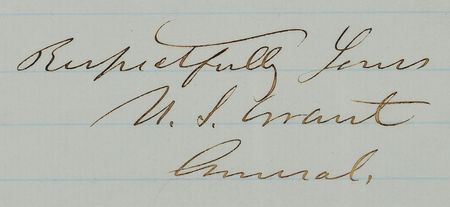 Respectfully Yours
U. S. Grant
General.